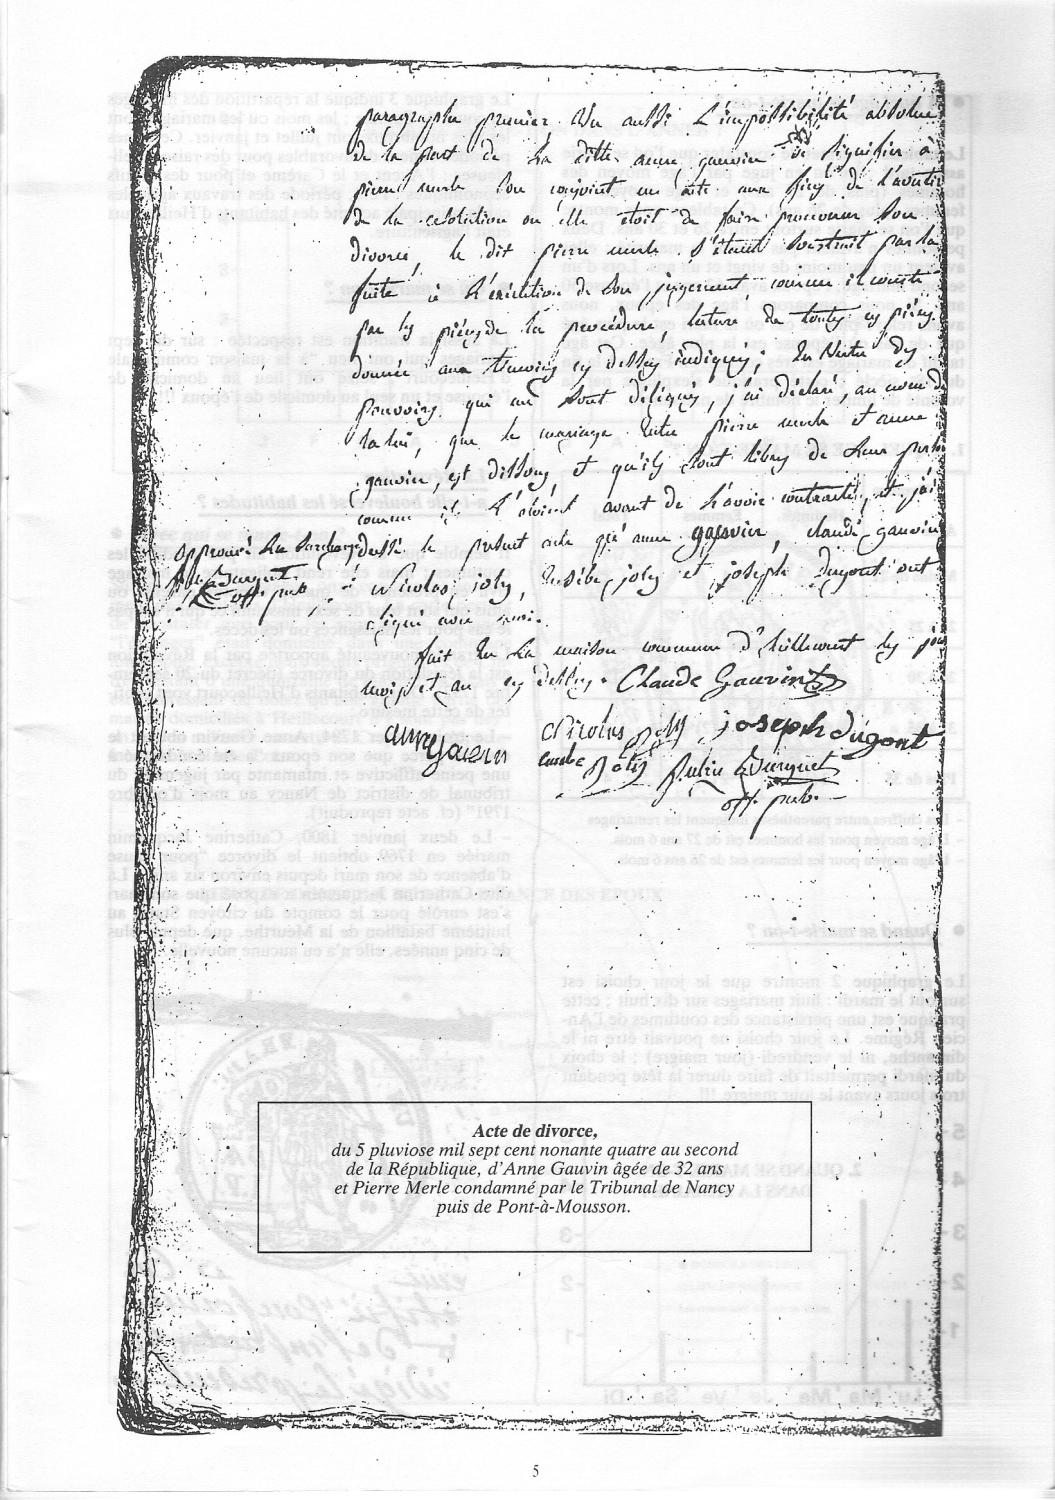 paragraphe premier Vu aussi l'impossibilité absolue
de la part de la ditte anne gauvin de signifier à
pierre merle son conjoint un acte aux fins de l'avertir
de la citation où elle étoit de faire prononcer son
divorce, le dit pierre merle s'étant soustrait par la
fuite à l'exécution de son jugement comme il conste
par les pièces de la procédure, lecture de toutes ces pièces
donnée aux témoins cy dessus indiqués; En Vertu des
pouvoirs qui me sont délégués, j'ai déclaré, au nom de
la loi, que le mariage entre pierre merle et anne
gauvin, est dissous, et qu'ils sont libres de leur
comme ils l'étoient avant de l'avoir contracté, et j'ai
approuvé la surcharge dressé le présent acte que anne gauvin, claude gauvin
Burguet
off. pub.
Nicolas joly, Eusèbe joly et joseph Dugont ont
signé avec moi.
fait En la maison commune d'heillecourt les jour
mois et an cy dessus. Claude Gauvin
anne Gauvin Nicolas Joly joseph dugont
Joly Burguet
off. pub.
Acte de divorce,
du 5 pluviose mil sept cent nonante quatre au second
de la République, d'Anne Gauvin âgée de 32 ans
et Pierre Merle condamné par le Tribunal de Nancy
puis de Pont-à-Mousson.
5